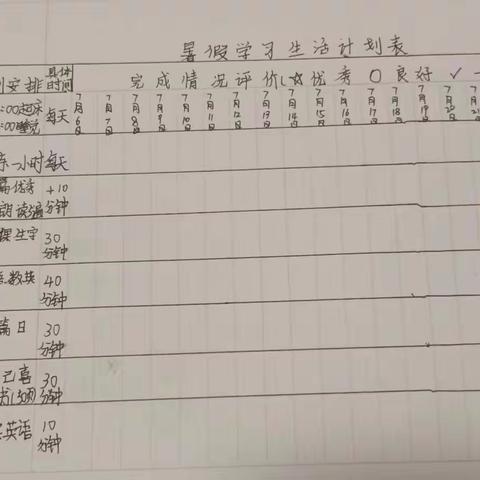 暑假学习生活计划表
安排 具体时间 完成情况评价 ☆优秀 ○良好 ✓
:00起床 :00睡觉 每天 7月6日 7月7日 7月8日 7月9日 7月10日 7月11日 7月12日 7月13日 7月14日 7月15日 7月16日 7月17日 7月18日 7月19日 7月20日 7月21日
一小时 每天
篇优秀 +10
朗读 分钟
生字 30分钟
数英 40分钟
篇日 30分钟
己喜 30分钟
英语 10分钟